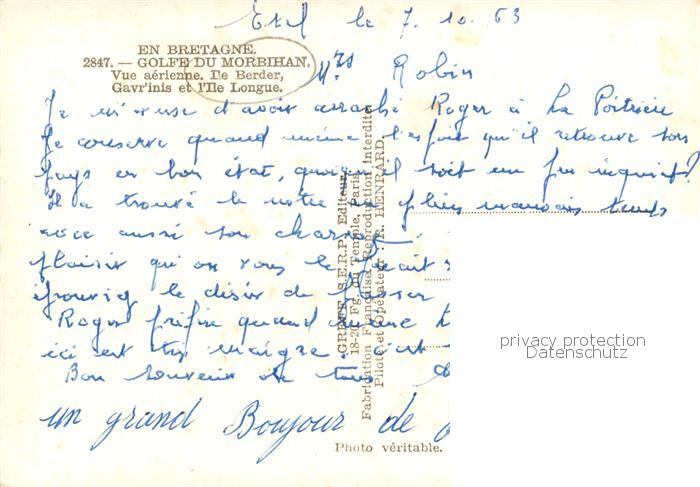 Etel le 7. 10. 63
EN BRETAGNE.
2847. — GOLFE DU MORBIHAN.
Vue aérienne. Ile Berder,
Gavr'inis et l'Ile Longue.
Mrs Robin
Je m'excuse d'avoir arraché Roger à La
Je conserve quand même l'espoir qu'il retrouve son
pays en bon état, quoiqu'il soit un peu inquiet?
Il a trouvé le notre plein mauvais temps
avec aussi son charme
plaisir qu'on vous le
le désir de
Roger quand même
ici est très maigre c'est
Bon souvenir de tous
un grand Bonjour de
GREFF, S.E.R.P., Editeur,
18-20, Fg. du Temple, Paris
Fabrication Française (Reproduction interdite)
Pilote et Opérateur : R. HENRARD
Photo véritable.
privacy protection
Datenschutz